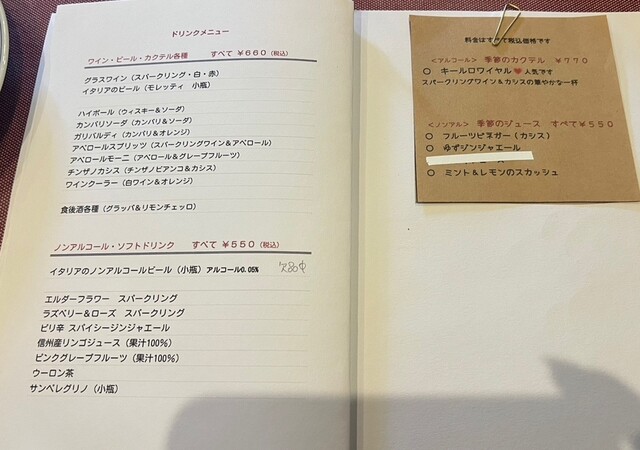 ドリンクメニュー
ワイン・ビール・カクテル各種　すべて ￥660（税込）
グラスワイン（スパークリング・白・赤）
イタリアのビール（モレッティ　小瓶）
ハイボール（ウィスキー＆ソーダ）
カンパリソーダ（カンパリ＆ソーダ）
ガリバルディ（カンパリ＆オレンジ）
アペロールスプリッツ（スパークリングワイン＆アペロール）
アペロールモーニ（アペロール＆グレープフルーツ）
チンザノカシス（チンザノビアンコ＆カシス）
ワインクーラー（白ワイン＆オレンジ）
食後酒各種（グラッパ＆リモンチェッロ）
ノンアルコール・ソフトドリンク　すべて ￥550（税込）
イタリアのノンアルコールビール（小瓶）アルコール0.05%　欠品中
エルダーフラワー　スパークリング
ラズベリー＆ローズ　スパークリング
ピリ辛 スパイシージンジャエール
信州産リンゴジュース（果汁100％）
ピンクグレープフルーツ（果汁100％）
ウーロン茶
サンペレグリノ（小瓶）
料金はすべて税込価格です
＜アルコール＞ 季節のカクテル ￥770
○ キールロワイヤル♥人気です
スパークリングワイン＆カシスの華やかな一杯
＜ノンアル＞ 季節のジュース すべて￥550
○ フルーツビネガー（カシス）
○ ゆずジンジャエール
○ ミント＆レモンのスカッシュ